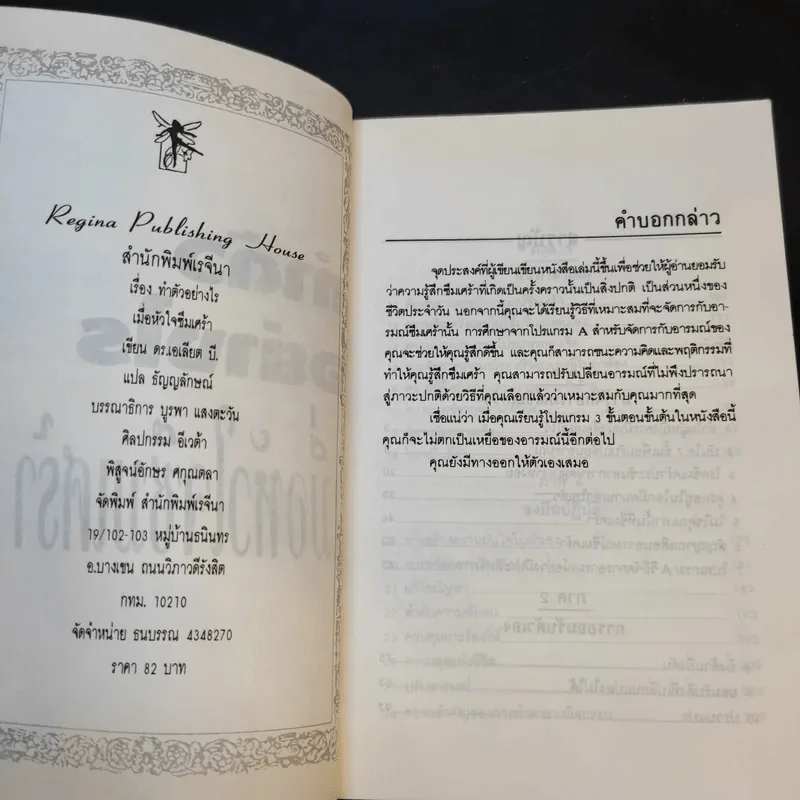 Regina Publishing House
สำนักพิมพ์เรจีนา
เรื่อง ทำตัวอย่างไร
เมื่อหัวใจซึมเศร้า
เขียน ดร.เอเลียต บี.
แปล ธัญญลักษณ์
บรรณาธิการ บูรพา แสงตะวัน
ศิลปกรรม อีเวต้า
พิสูจน์อักษร ศกุณตลา
จัดพิมพ์ สำนักพิมพ์เรจีนา
19/102-103 หมู่บ้านธนินทร
อ.บางเขน ถนนวิภาวดีรังสิต
กทม. 10210
จัดจำหน่าย ธนบรรณ 4348270
ราคา 82 บาท
คำบอกกล่าว
จุดประสงค์ที่ผู้เขียนเขียนหนังสือเล่มนี้ขึ้นเพื่อช่วยให้ผู้อ่านยอมรับ
ว่าความรู้สึกซึมเศร้าที่เกิดเป็นครั้งคราวนั้นเป็นสิ่งปกติ เป็นส่วนหนึ่งของ
ชีวิตประจำวัน นอกจากนี้คุณจะได้เรียนรู้วิธีที่เหมาะสมที่จะจัดการกับอา-
รมณ์ซึมเศร้านั้น การศึกษาจากโปรแกรม A สำหรับจัดการกับอารมณ์ของ
คุณจะช่วยให้คุณรู้สึกดีขึ้น และคุณก็สามารถชนะความคิดและพฤติกรรมที่
ทำให้คุณรู้สึกซึมเศร้า คุณสามารถปรับเปลี่ยนอารมณ์ที่ไม่พึงปรารถนา
สู่ภาวะปกติด้วยวิธีที่คุณเลือกแล้วว่าเหมาะสมกับคุณมากที่สุด
เชื่อแน่ว่า เมื่อคุณเรียนรู้โปรแกรม 3 ขั้นตอนขั้นต้นในหนังสือนี้
คุณก็จะไม่ตกเป็นเหยื่อของอารมณ์นี้อีกต่อไป
คุณยังมีทางออกให้ตัวเองเสมอ